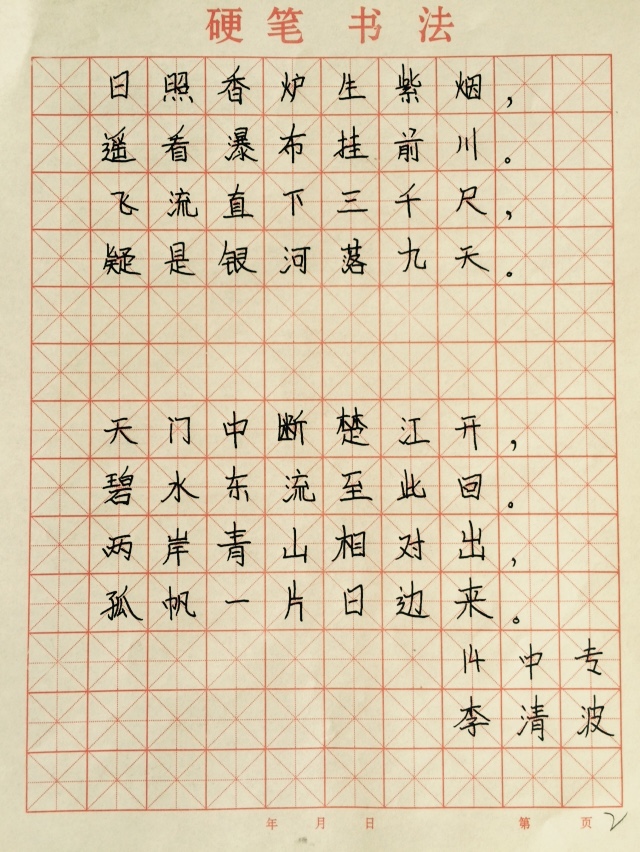 硬笔书法
日照香炉生紫烟，
遥看瀑布挂前川。
飞流直下三千尺，
疑是银河落九天。
天门中断楚江开，
碧水东流至此回。
两岸青山相对出，
孤帆一片日边来。
14中专
李清波
年 月 日 第 页 2